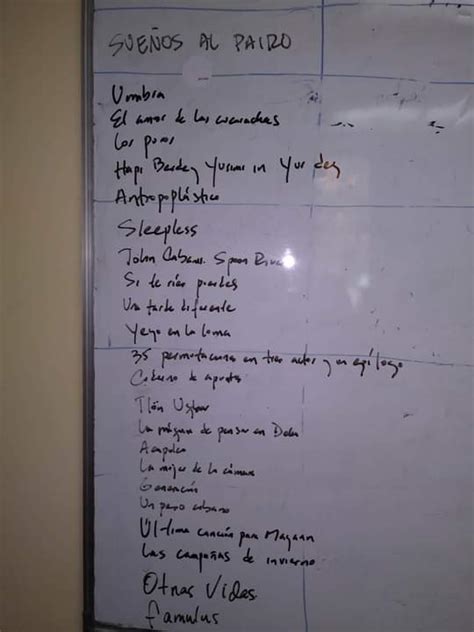 SUEÑOS AL PAIRO
Umbría
El amor de las cucarachas
Los puros
Hapi Berdey Yurim in Yur dey
Antropoplástico
Sleepless
John Cabans. Spoon River
Si te rías pierdes
Una tarde diferente
Yeyo en la loma
35 permutaciones en tres actos y un epílogo
Caderno de apuntes
Tlön Uqbar
La máquina de pensar en Dalia
Acapulco
La mujer de la cámara
Generación
Un paseo cubano
Última canción para Mayaan
Las campañas de invierno
Otras Vidas
famulus